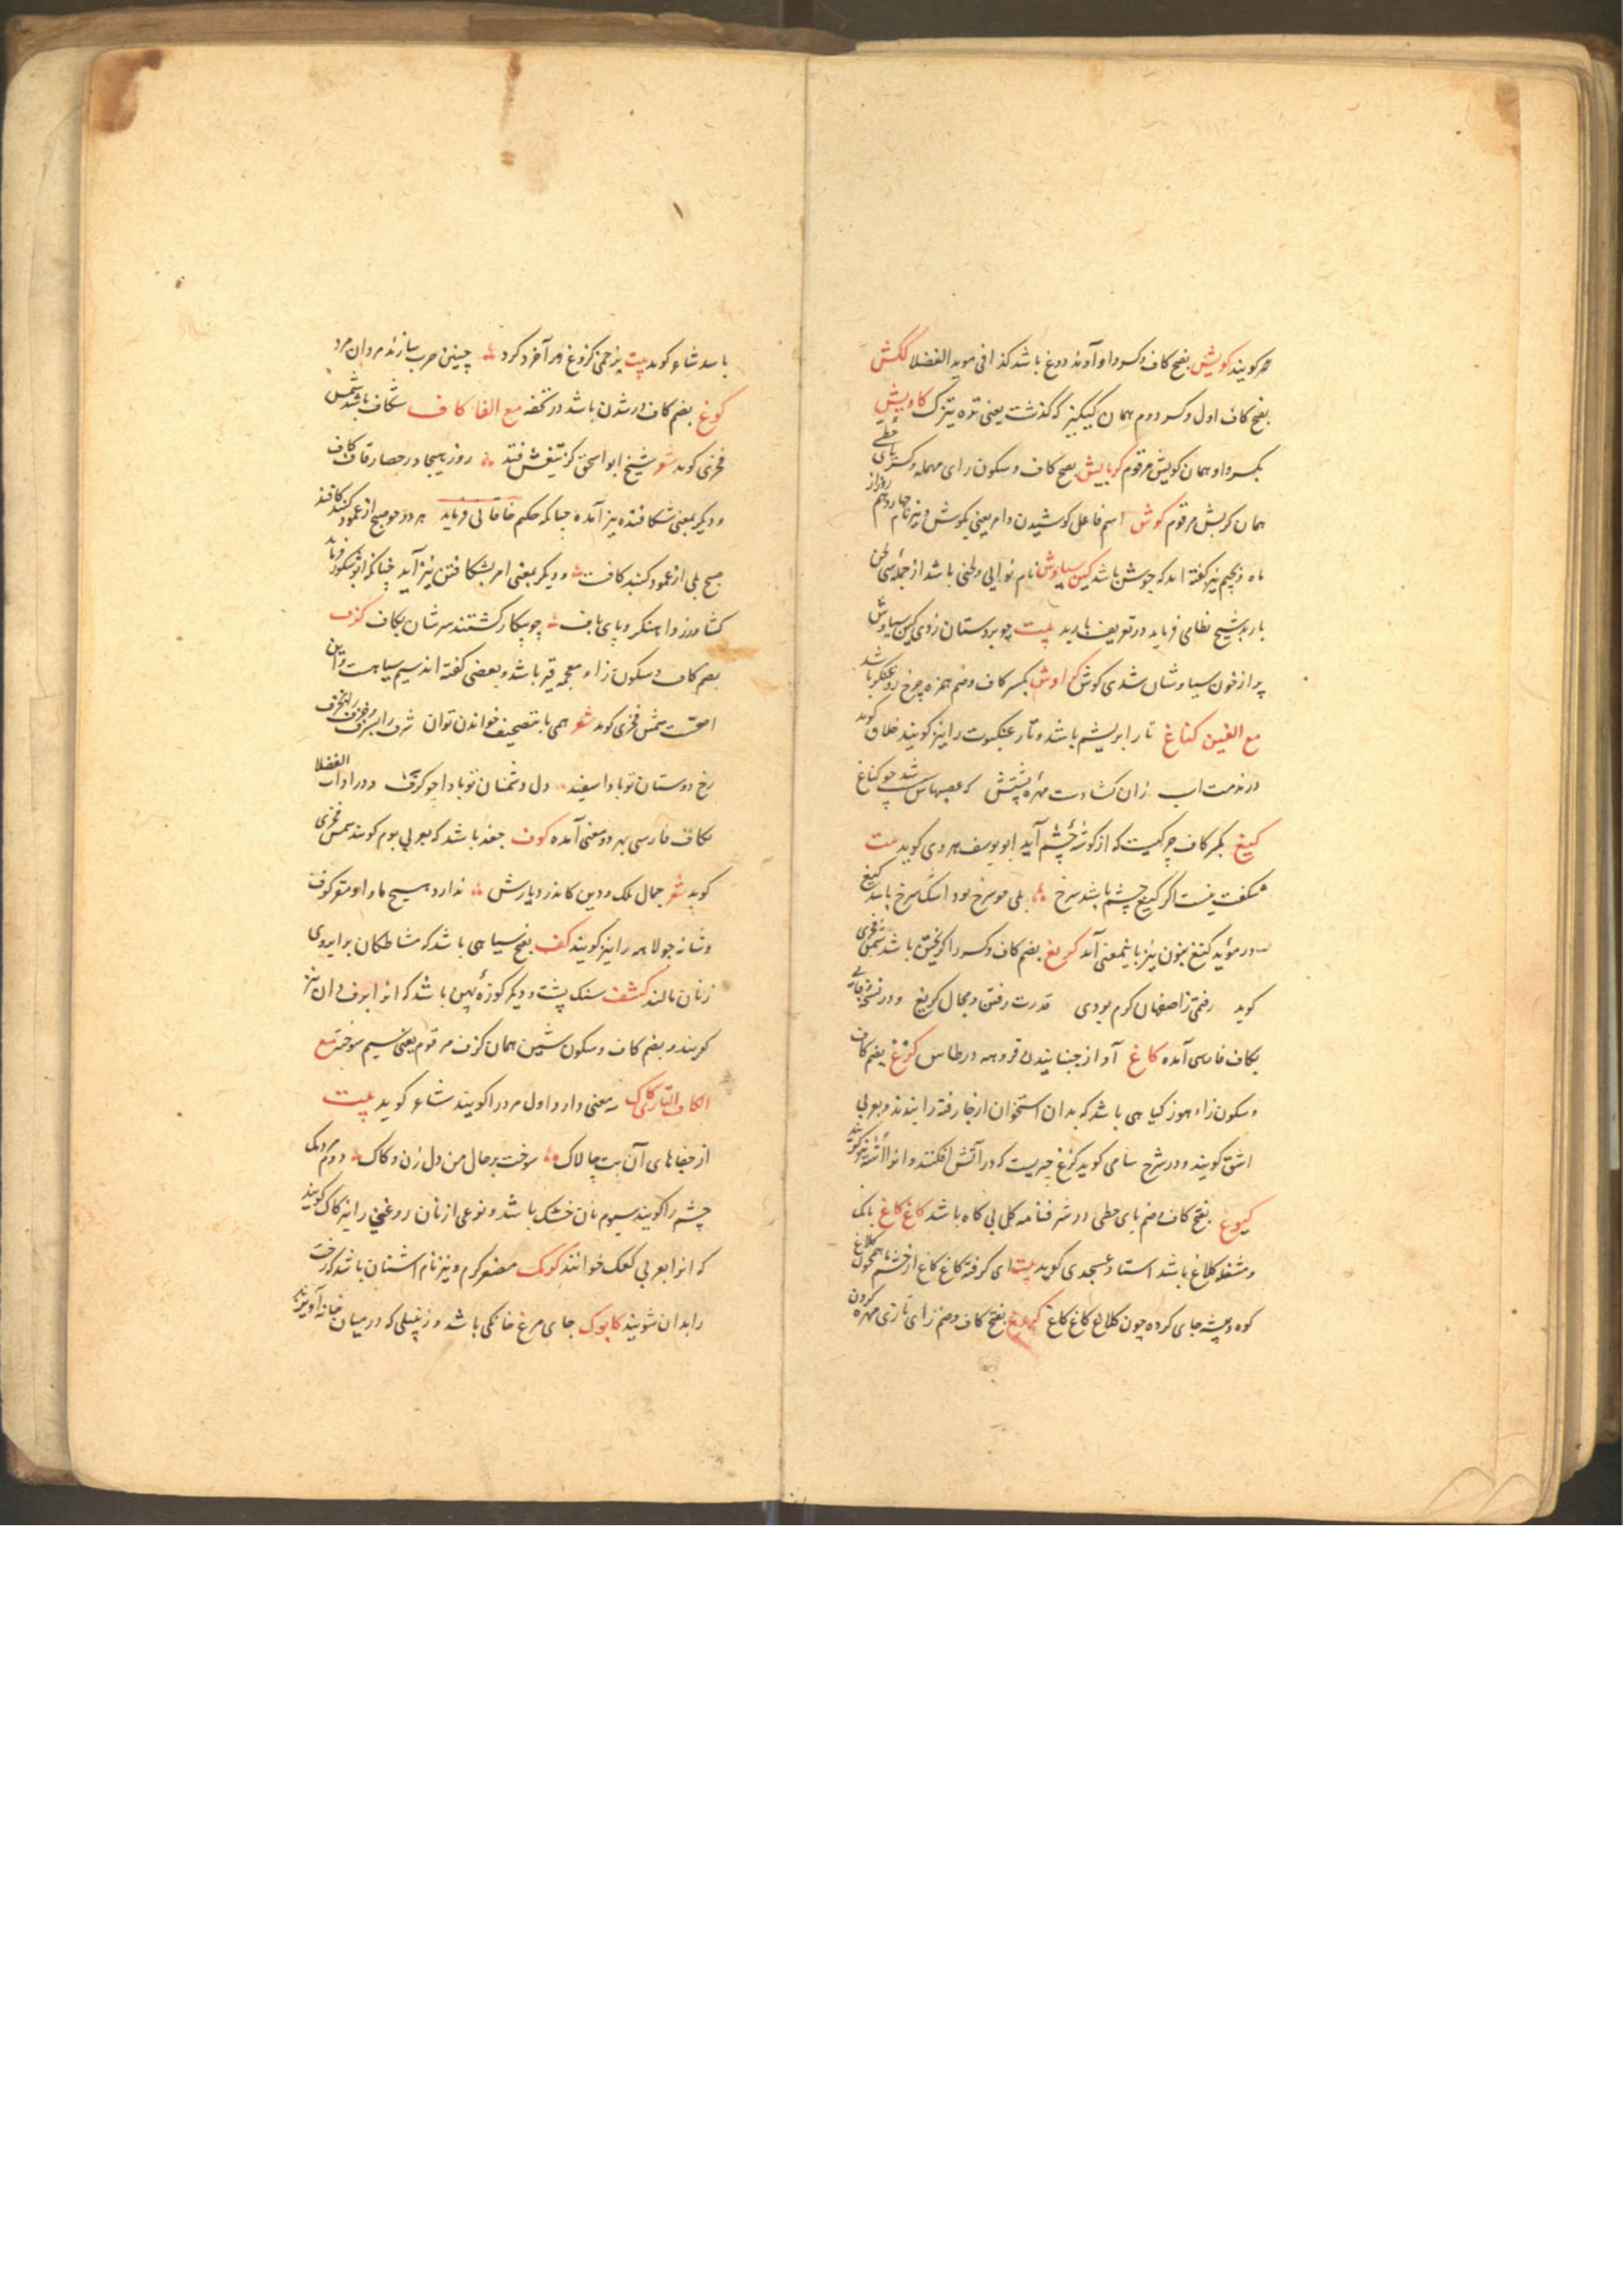 خر کویند کویش بفتح کاف و کسر واو آوند دوغ باشد کذا فی موید الفضلا ککش
بفتح کاف اول و کسر دوم همان کیکیز که گذشت یعنی تره تیزک کاویش
بکسر واو همان کویش مرقوم کربایش بفتح کاف و سکون رای مهمله و کسر یای حطی
همان کربش مرقوم کوش اسم فاعل کوشیدن و امر یعنی بکوش و نیز نام روز چهاردهم از
ماه و بجیم نیز کفته اند که جوش باشد کین سیاوش نام نوایی و لحنی باشد از جمله سی لحن
باربد شیخ نظامی فرماید در تعریف باربد بیت چو بر دستان زدی کین سیاوش
پر از خون سیاوشان شدی کوش کراوش بکسر کاف و ضم همزه چرخ روغنکر باشد
مع الغین کناغ تار ابریشم باشد و تار عنکبوت را نیز کویند خلاق کوید
در مذمت اسب زان کشادست مهره پشتش که عصبهاش شد چو کناغ
کیغ بکسر کاف چرکیست که از کوشه چشم آید ابو یوسف هروی کوید بیت
شکفت نیست اگر کیغ چشم باشد سرخ بلی چو سرخ بود اشک سرخ باشد کیغ
و در مؤید کنغ بنون نیز باینمعنی آمد کریغ بضم کاف و کسر را کریختن باشد شمس فخری
کوید رفتمی زاصفهان کرم بودی قدرت رفتن و مجال کریغ و در نسخه وفائی
بکاف فارسی آمده کاغ آواز جنبانیدن قروسه در طاس کزغ بضم کاف
و سکون زاء هوز کیاهی باشد که بدان استخوان از جا رفته را بندند و بعربی
اشق کویند و در شرح سامی کوید کزغ چیزیست که در آتش افکنند و انرا نیز کویند
کیوغ بفتح کاف و ضم یای حطی در شرفنامه کل بی کاه باشد کاغ کاغ بانک
و مشغله کلاغ باشد استاد عسجدی کوید بیت ای کرفته کاغ کاغ از خشم ما همچون کلاغ
کوه و بیشه جای کرده چون کلاغ کاغ کاغ بفتح کاف و ضم زای تازی مهره کردن
باشد شاعر کوید بیت بزخمی کزوغ ور آخرد کرد چنین حرب سازند مردان مرد
کوغ بضم کاف در شدن باشد در تحفه مع الفا کاف شکاف باشد شمس
فخری کوید شعر شیخ ابو اسحق کز تیغش فتد روز هیجا در حصار قاف کاف
و دیگر بمعنی شکافنده نیز آمده چنانکه حکیم خاقانی فرماید هر دو چو صبح از عمود کنبد کافند
صبح بلی از عمود کنبد کافت و دیگر بمعنی امر بشکافتن نیز آید چنانکه ابو شکور فرماید
کشاورز و آهنکر و پای باف چو بیکار کشتند سرشان بکاف کزف
بضم کاف و سکون زاء معجمه قیر باشد و بعضی کفته اند سیم سیاهست و این
اصحست شمس فخری کوید شعر همی با بتصحیف خواندن توان شرف را سرف
رخ دوستان تو بادا سفید دل دشمنان تو بادا چو کزف و در اداب الفضلا
بکاف فارسی بهر دو معنی آمده کوف جغد باشد که بعربی بوم کویند شمس فخری
کوید شعر جمال ملک و دین کاندر دیارش ندارد هیچ ماوا و مقر کوف
و شانه جولاهه را نیز کویند کف بفتح سیاهی باشد که مشاطکان بر ابروی
زنان مالند کشف سنک پشت و دیگر کوزه پهن باشد که انرا ابرفدان نیز
کویند و بضم کاف و سکون شین همان کزف مرقوم یعنی سیم سوخته مع
الکاف التازی کاک سه معنی دارد اول مرد را کویند شاعر کوید بیت
از جفاهای آن بت چالاک سوخت بر حال من دل زن و کاک دوم مردمک
چشم را کویند سیوم نان خشک باشد و نوعی از نان روغنی را نیز کاک کویند
که انرا بعربی کعک خوانند کوک مصغر کرم و نیز نام اشنان باشد که رخت
را بدان شویند کابوک جای مرغ خانکی باشد و زنبیلی که در میان خانه آویزند